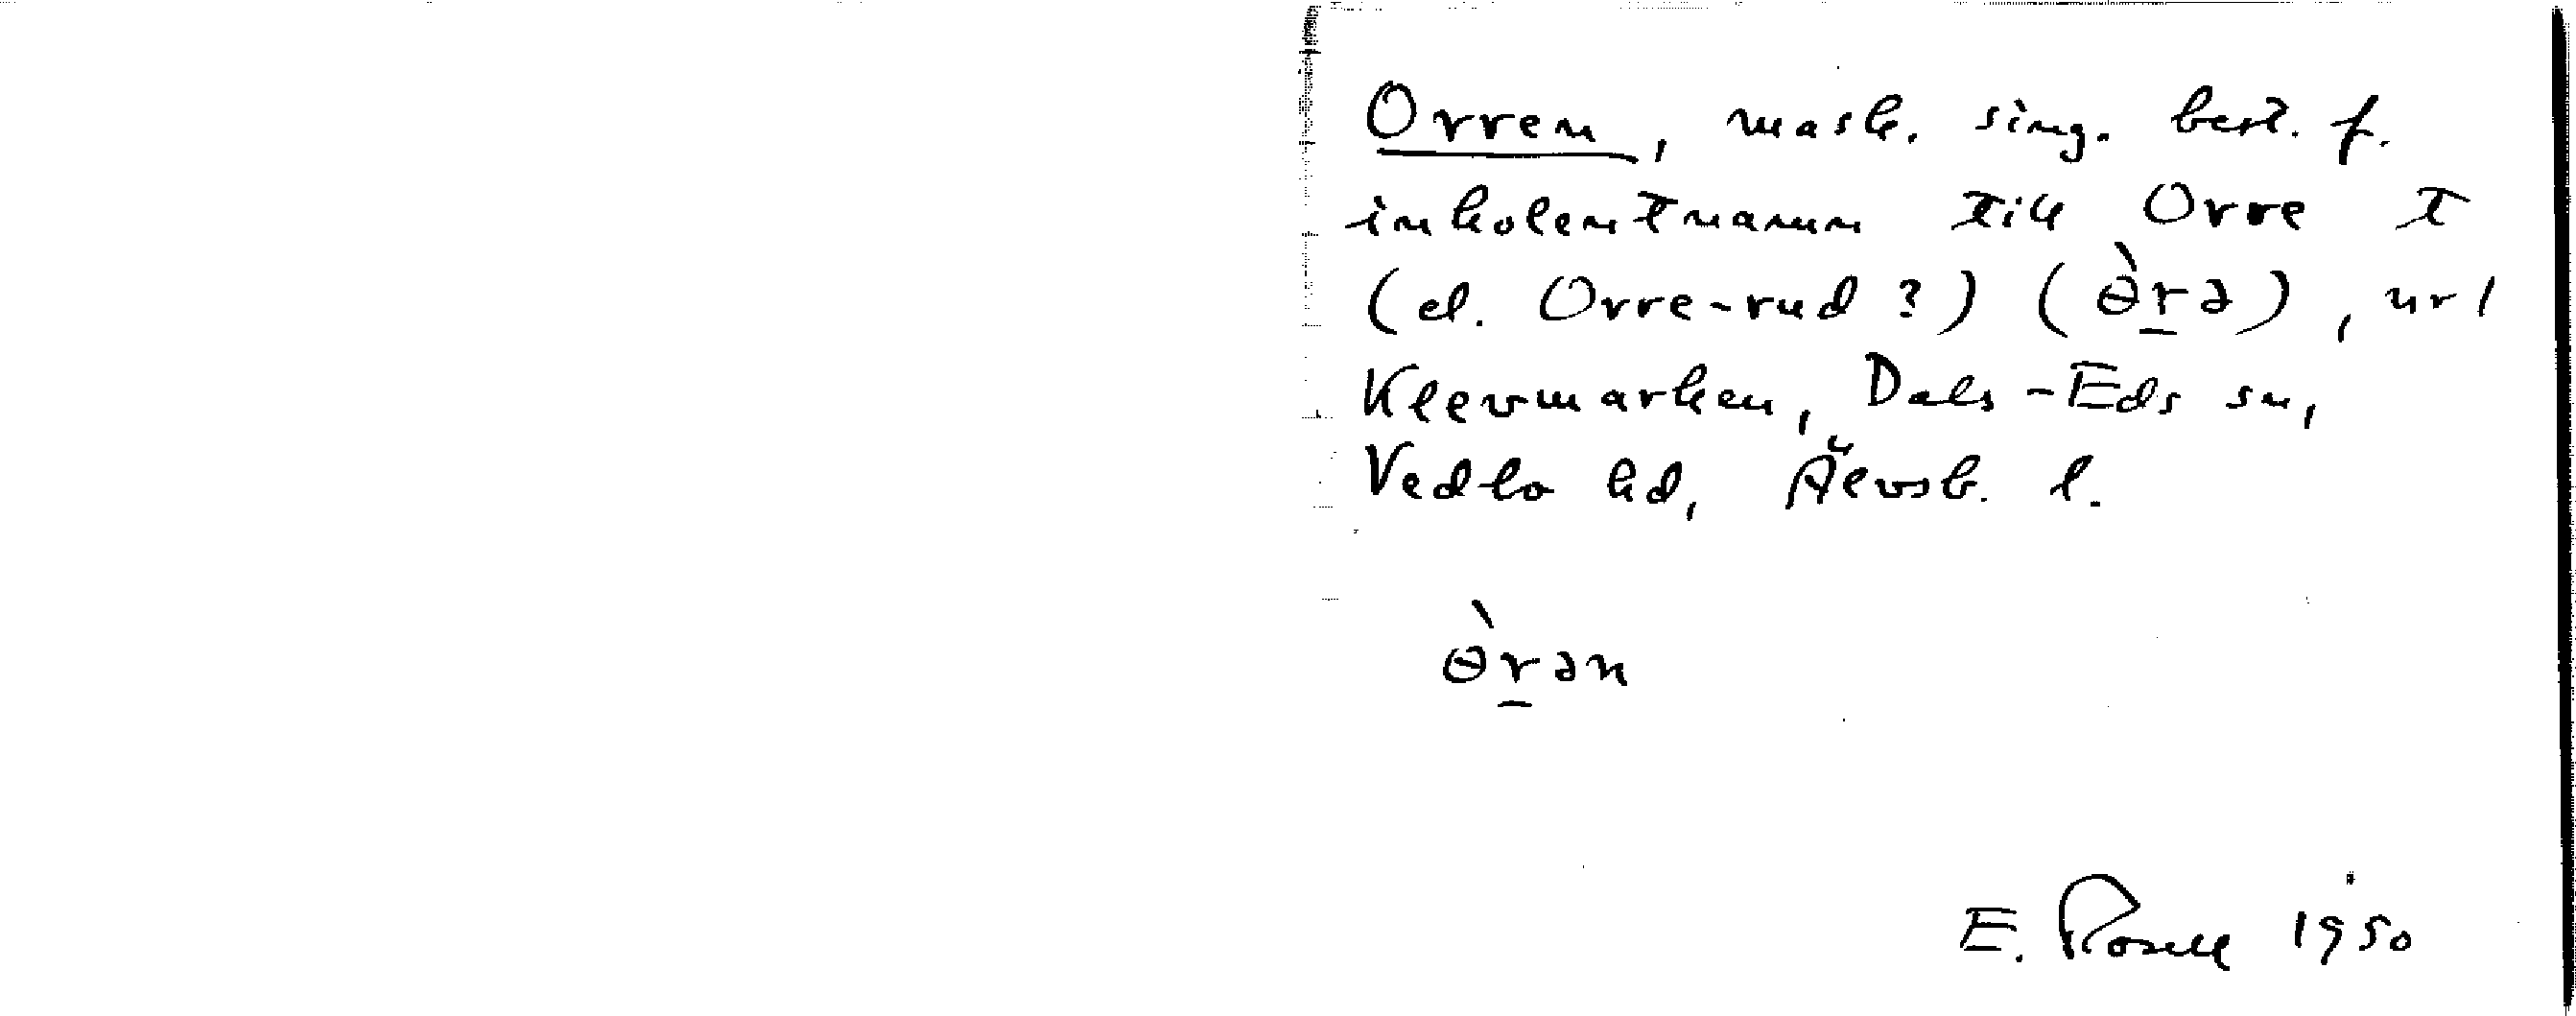 Orren, mask. sing. best. f.
inkolentnamn till Orre t
(el. Orre-rud ?) (ɵ̀rə), ur l
Klevmarken, Dals-Eds sn,
Vedbo hd, Älvsb. l.
ɵ̀rən
E. Rosell 1950